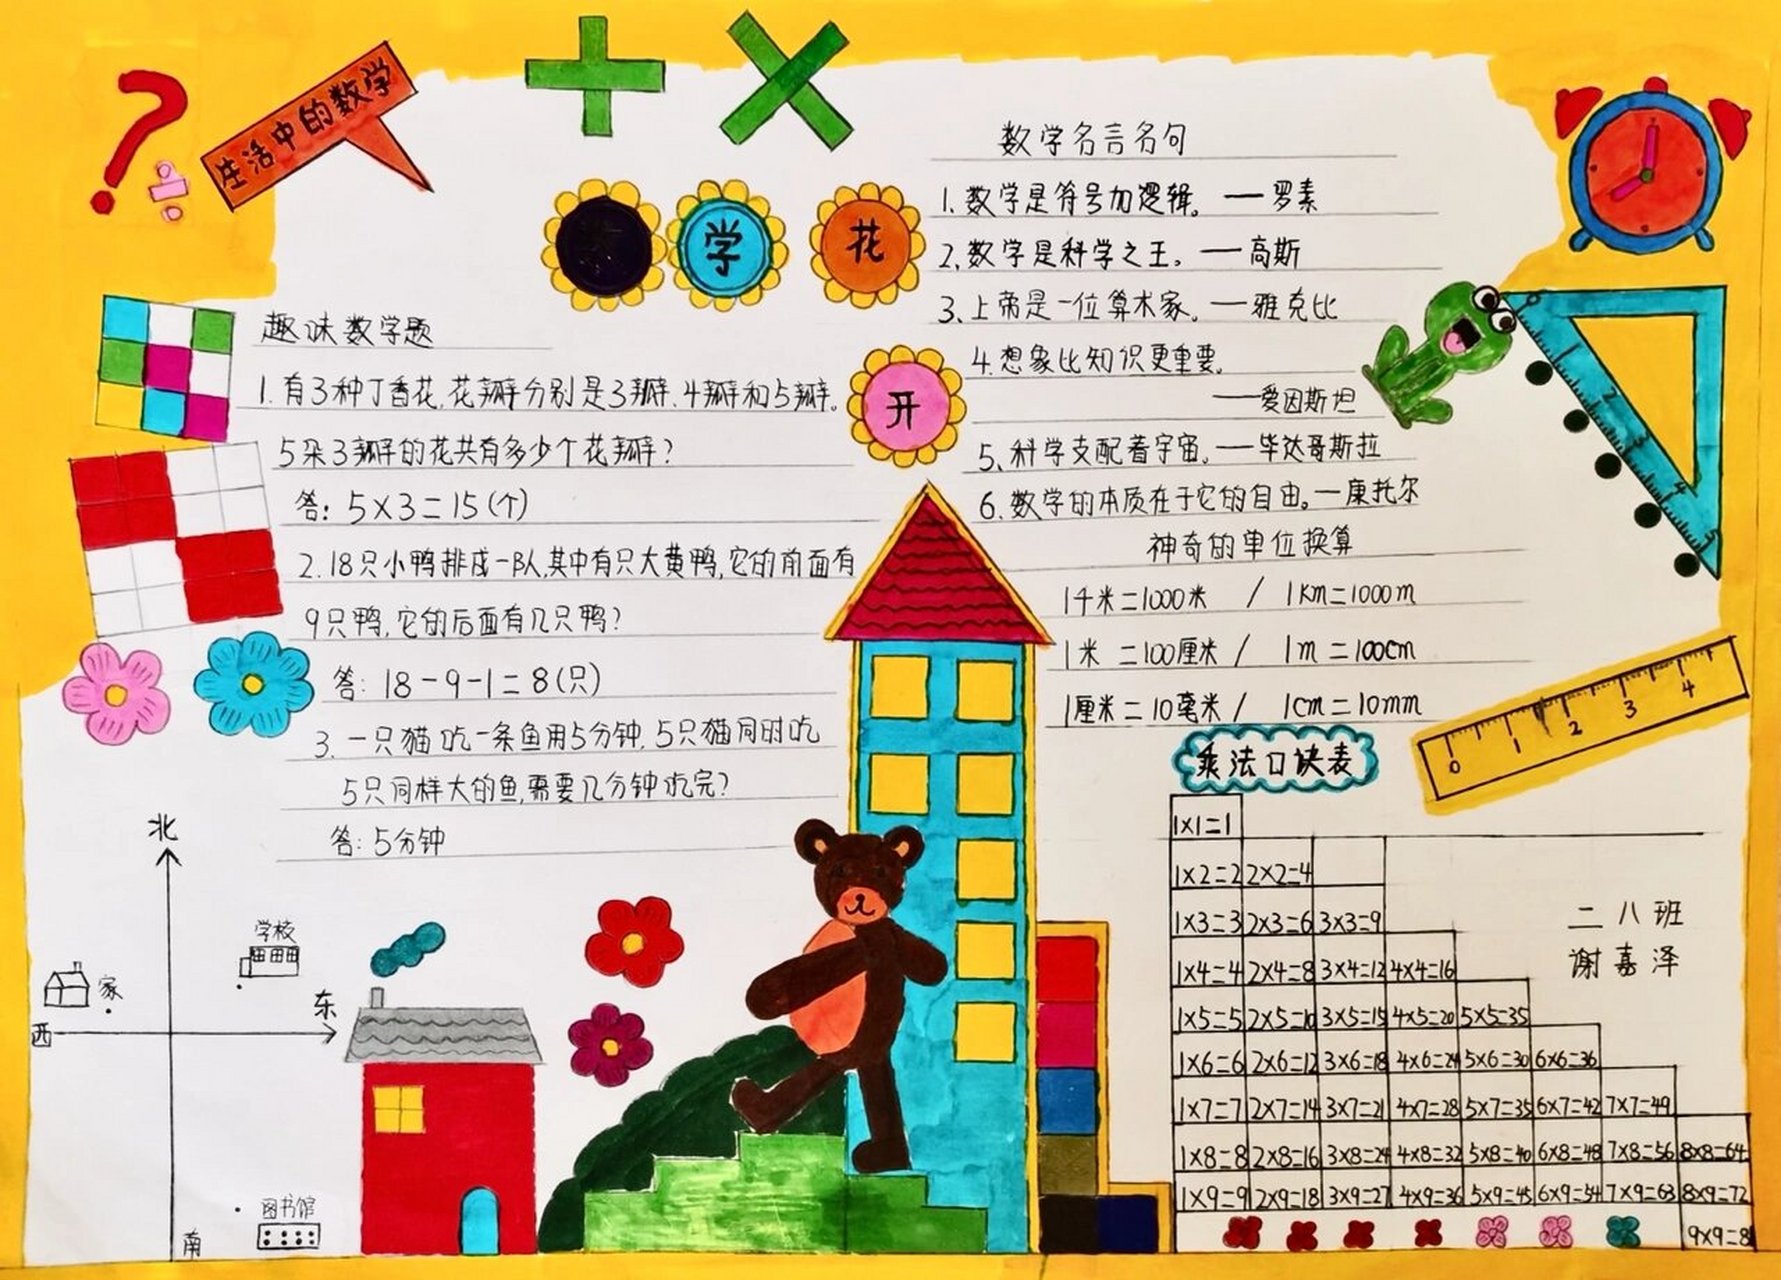 生活中的数学
学
花
开
趣味数学题
1.有3种丁香花,花瓣分别是3瓣.4瓣和5瓣。
5朵3瓣的花共有多少个花瓣?
答: 5×3=15(个)
2.18只小鸭排成一队,其中有只大黄鸭,它的前面有
9只鸭,它的后面有几只鸭?
答: 18-9-1=8(只)
3.一只猫吃一条鱼用5分钟.5只猫同时吃
5只同样大的鱼,需要几分钟吃完?
答: 5分钟
数学名言名句
1.数学是符号加逻辑。——罗素
2.数学是科学之王。——高斯
3.上帝是一位算术家。——雅克比
4.想象比知识更重要。
——爱因斯坦
5.科学支配着宇宙。——毕达哥斯拉
6.数学的本质在于它的自由。—康托尔
神奇的单位换算
1千米=1000米 / 1km=1000m
1米=100厘米 / 1m=100cm
1厘米=10毫米 / 1cm=10mm
2
3
4
5
0 1 2 3 4
乘法口诀表
1×1=1
1×2=2 2×2=4
1×3=3 2×3=6 3×3=9
1×4=4 2×4=8 3×4=12 4×4=16
1×5=5 2×5=10 3×5=15 4×5=20 5×5=35
1×6=6 2×6=12 3×6=18 4×6=24 5×6=30 6×6=36
1×7=7 2×7=14 3×7=21 4×7=28 5×7=35 6×7=42 7×7=49
1×8=8 2×8=16 3×8=24 4×8=32 5×8=40 6×8=48 7×8=56 8×8=64
1×9=9 2×9=18 3×9=27 4×9=36 5×9=45 6×9=54 7×9=63 8×9=72
9×9=8
二八班
谢嘉泽
北
学校
家
东
西
图书馆
南